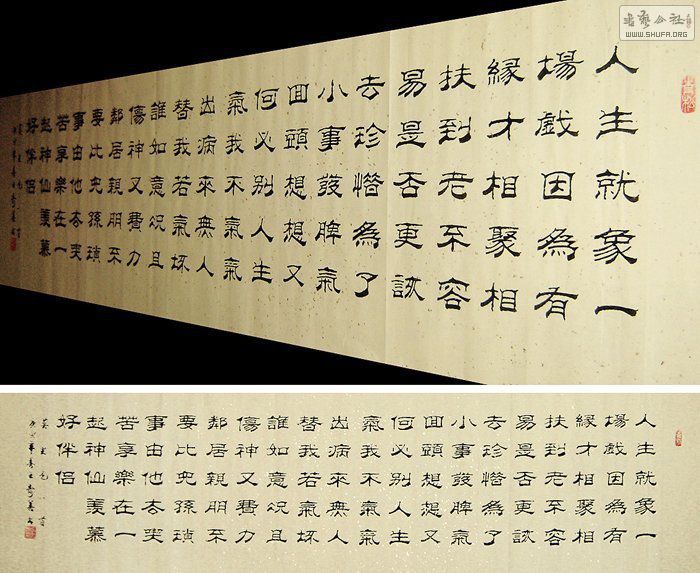 書藝公社
WWW.SHUFA.ORG
人生就象一
場戲因為有
緣才相聚相
扶到老不容
易是否更該
去珍惜為了
小事發脾氣
回頭想想又
何必別人生
氣我不氣氣
出病來無人
替我若氣坏
誰如意况且
傷神又費力
邻居親朋不
要比兒孫瑣
事由他去
苦享樂在一
起神仙羡慕
好伴侣
人生就象一
場戲因為有
緣才相聚相
扶到老不容
易是否更該
去珍惜為了
小事發脾氣
回頭想想又
何必別人生
氣我不氣氣
出病來無人
替我若氣坏
誰如意况且
傷神又費力
邻居親朋不
要比兒孫瑣
事由他去
苦享樂在一
起神仙羡慕
好伴侣